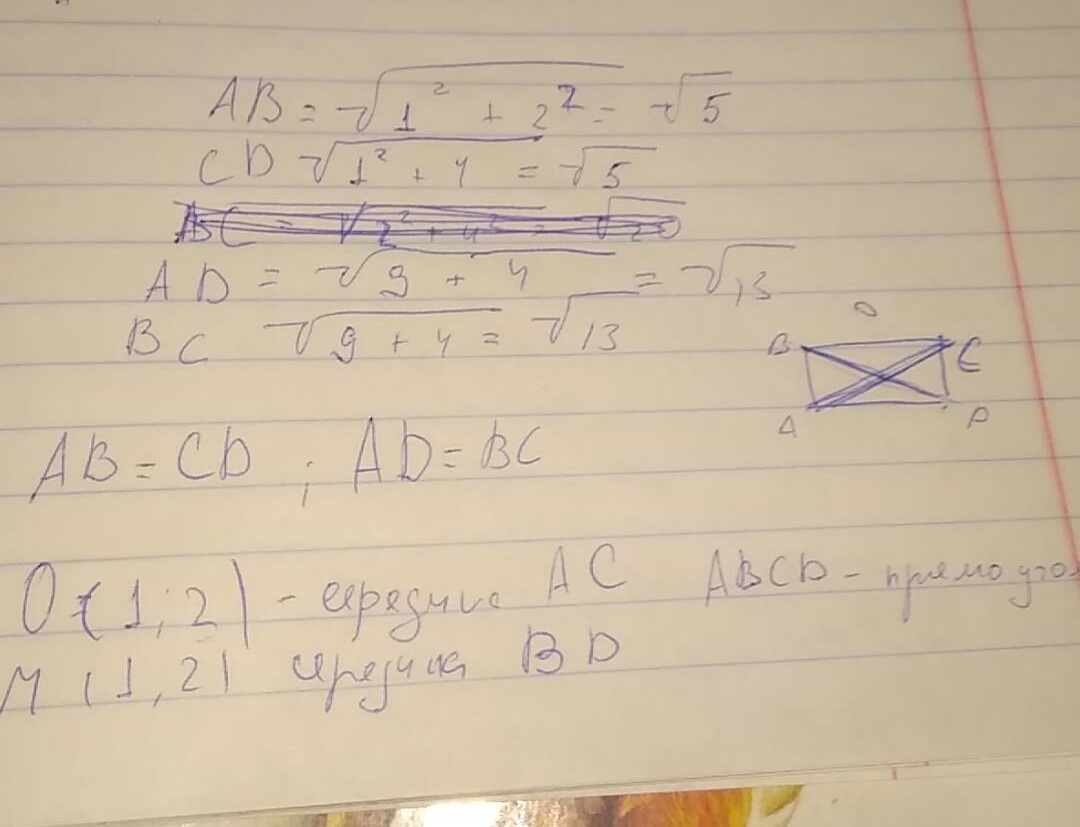 AB = √1² + 2² = √5
CD √1² + 4 = √5
BC = √2² + 4² = √20
AD = √9 + 4 = √13
BC √9 + 4 = √13
O
B C
A D
AB = CD ; AD = BC
O (1; 2) - середина AC ABCD - прямоугол
M (1, 2) середина BD